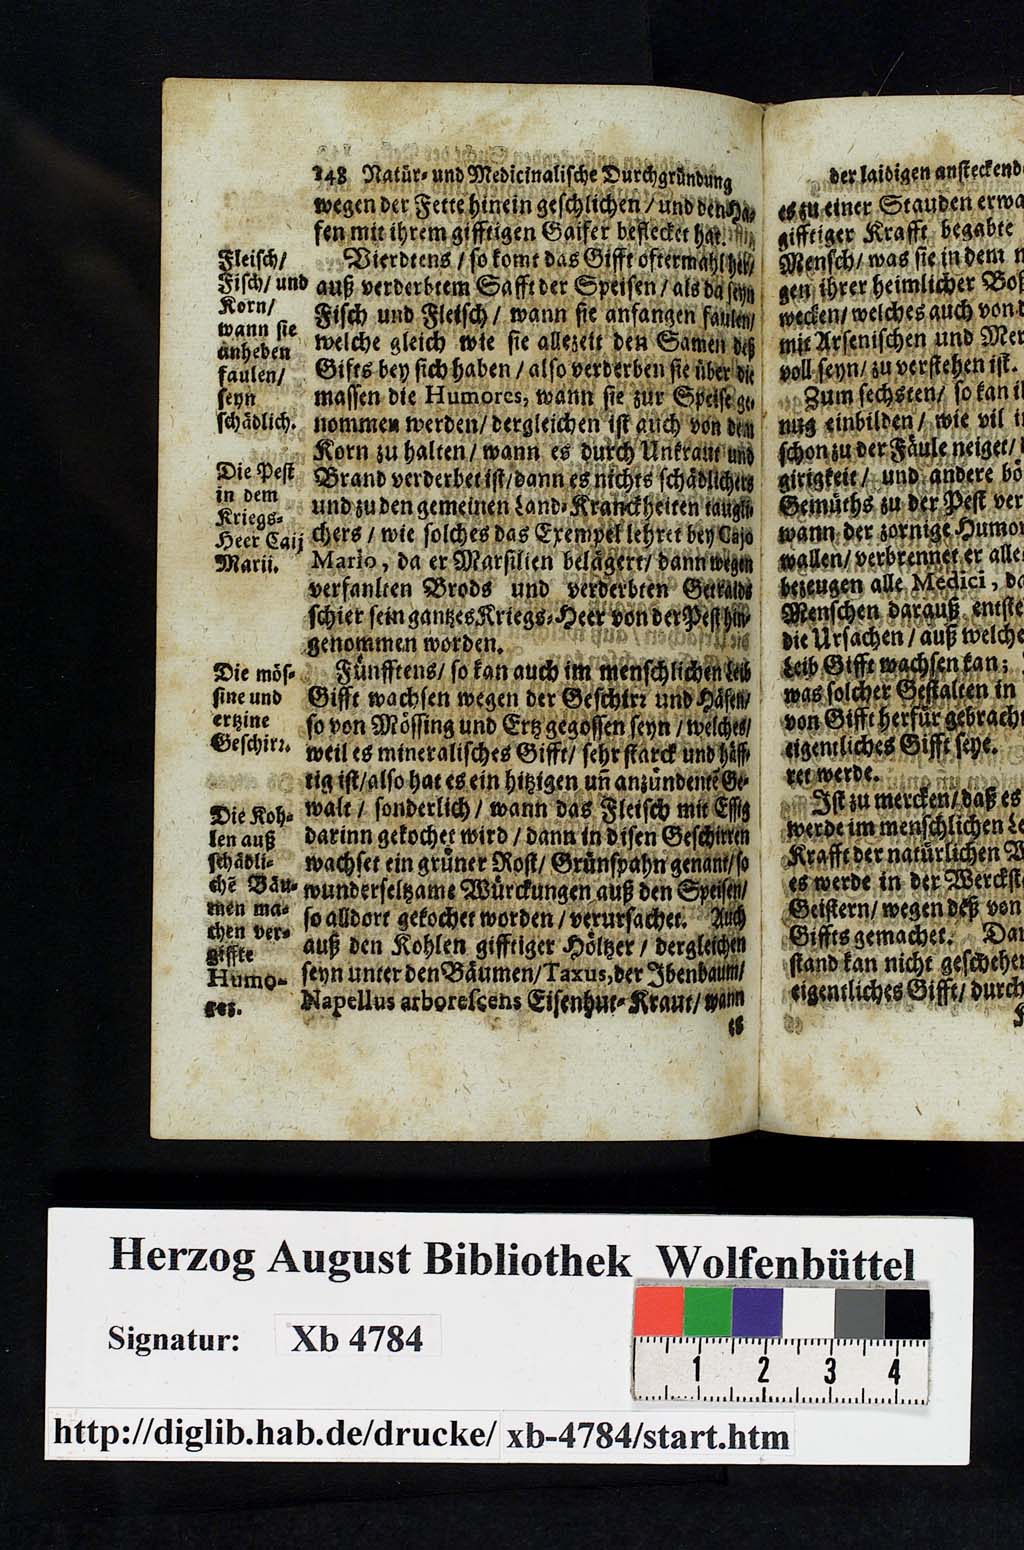 148 Natür- und Medicinalische Durchgründung
wegen der Fette hinein geschlichen / und den Hä-
fen mit ihrem gifftigen Gaifer beflecket hat.
Vierdtens / so komt das Gifft oftermahl her /
auß verderbtem Safft der Speisen / als da seyn
Fisch und Fleisch / wann sie anfangen faulen /
welche gleich wie sie allezeit den Samen deß
Gifts bey sich haben / also verderben sie über die
massen die Humores, wann sie zur Speise ge-
nommen werden / dergleichen ist auch von dem
Korn zu halten / wann es durch Unkraut und
Brand verderbet ist / dann es nichts schädlichers
und zu den gemeinen Land-Kranckheiten taugli-
chers / wie solches das Exempel lehret bey Cajo
Mario, da er Marsilien belägert / dann wegen
verfaulten Brods und verderbten Getraids
schier sein gantzes Kriegs-Heer von der Pest hin-
genommen worden.
Fünfftens / so kan auch im menschlichen Leib
Gifft wachsen wegen der Geschirr und Häfen /
so von Mössing und Ertz gegossen seyn / welches /
weil es mineralisches Gifft / sehr starck und häff-
tig ist / also hat es ein hitzigen uñ anzündentẽ Ge-
walt / sonderlich / wann das Fleisch mit Essig
darinn gekochet wird / dann in disen Geschirren
wachset ein grüner Rost / Grünspahn genant / so
wunderseltzame Würckungen auß den Speisen /
so alldort gekochet worden / verursachet. Auch
auß den Kohlen gifftiger Höltzer / dergleichen
seyn unter den Bäumen / Taxus, der Ibenbaum /
Napellus arborescens Eisenhut-Kraut / wann
es
Fleisch /
Fisch / und
Korn /
wann sie
anheben
faulen /
seyn
schädlich.
Die Pest
in dem
Kriegs-
Heer Caij
Marii.
Die mös-
sine und
ertzine
Geschirr.
Die Koh-
len auß
schädli-
chẽ Bäu-
men ma-
chen ver-
giffte
Humo-
res.
der laidigen ansteckend
es zu einer Stauden erwa
gifftiger Krafft begabte
Mensch / was sie in dem
gen ihrer heimlicher Boß
wecken / welches auch von
mit Arsenischen und Mer
voll seyn / zu verstehen ist.
Zum sechsten / so kan
nug einbilden / wie vil
schon zu der Fäule neiget /
girigkeit / und andere bö
Gemüths zu der Pest ver
wann der zornige Humor
wallen / verbrennet er alle
bezeugen alle Medici, da
Menschen darauß entste
die Ursachen / auß welche
Leib Gifft wachsen kan;
was solcher Gestalten in
von Gifft herfür gebracht
eigentliches Gifft seye.
ret werde.
Ist zu mercken / daß es
werde im menschlichen Le
Krafft der natürlichen
es werde in der Werckst
Geistern / wegen deß von
Giffts gemachet. Dan
stand kan nicht geschehen
eigentliches Gifft / durch
Herzog August Bibliothek Wolfenbüttel
Signatur: Xb 4784
1 2 3 4
http://diglib.hab.de/drucke/ xb-4784/start.htm